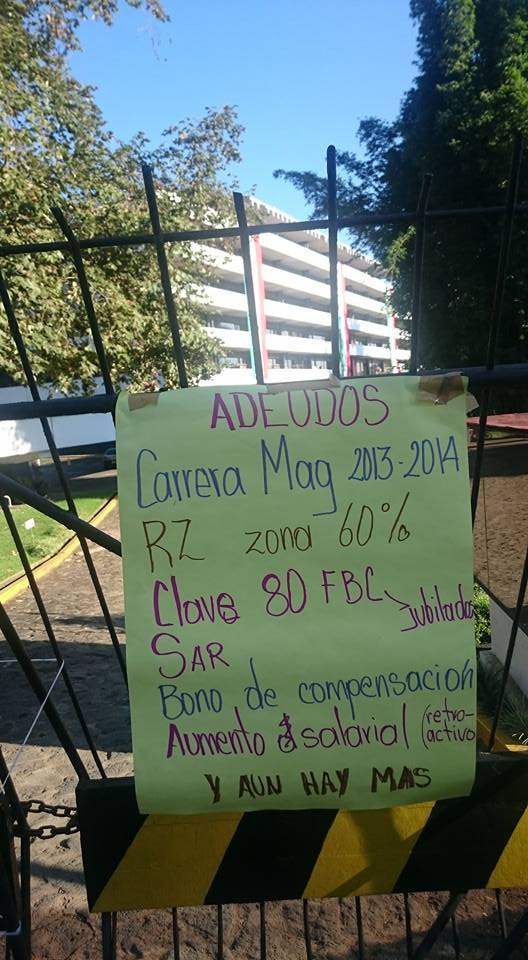 ADEUDOS
Carrera Mag 2013-2014
RZ zona 60%
Clave 80 FBC → jubilados
SAR
Bono de compensacion
Aumento $ salarial (retro-
activo
Y AUN HAY MAS